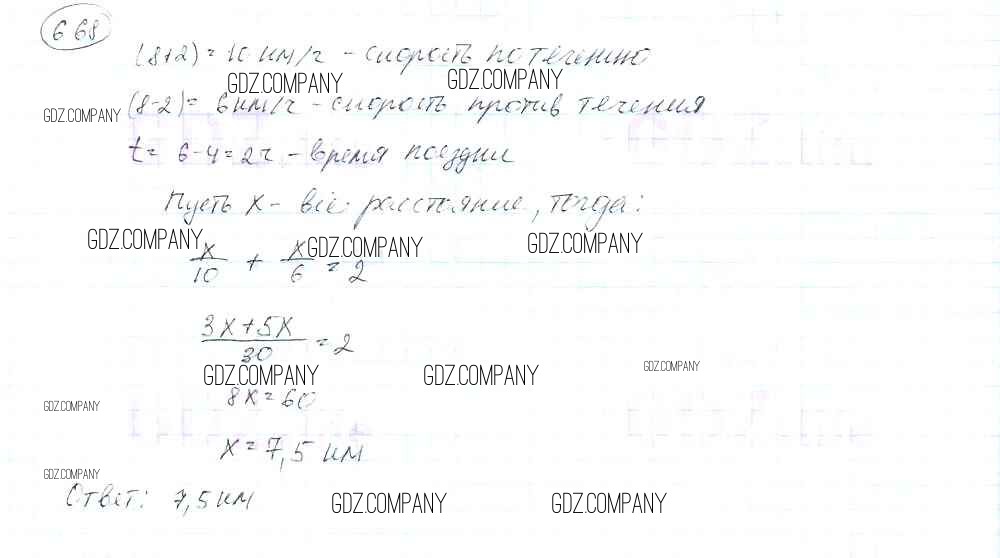 668
(8+2) = 10 км/ч - скорость по течению
GDZ.COMPANY GDZ.COMPANY
GDZ.COMPANY (8-2) = 6 км/ч - скорость против течения
t = 6-4 = 2ч - время поездки
Пусть x - всё расстояние, тогда:
GDZ.COMPANY GDZ.COMPANY GDZ.COMPANY
x/10 + x/6 = 2
(3x+5x)/30 = 2
GDZ.COMPANY GDZ.COMPANY GDZ.COMPANY
GDZ.COMPANY 8x = 60
x = 7,5 км
GDZ.COMPANY
Ответ: 7,5 км GDZ.COMPANY GDZ.COMPANY